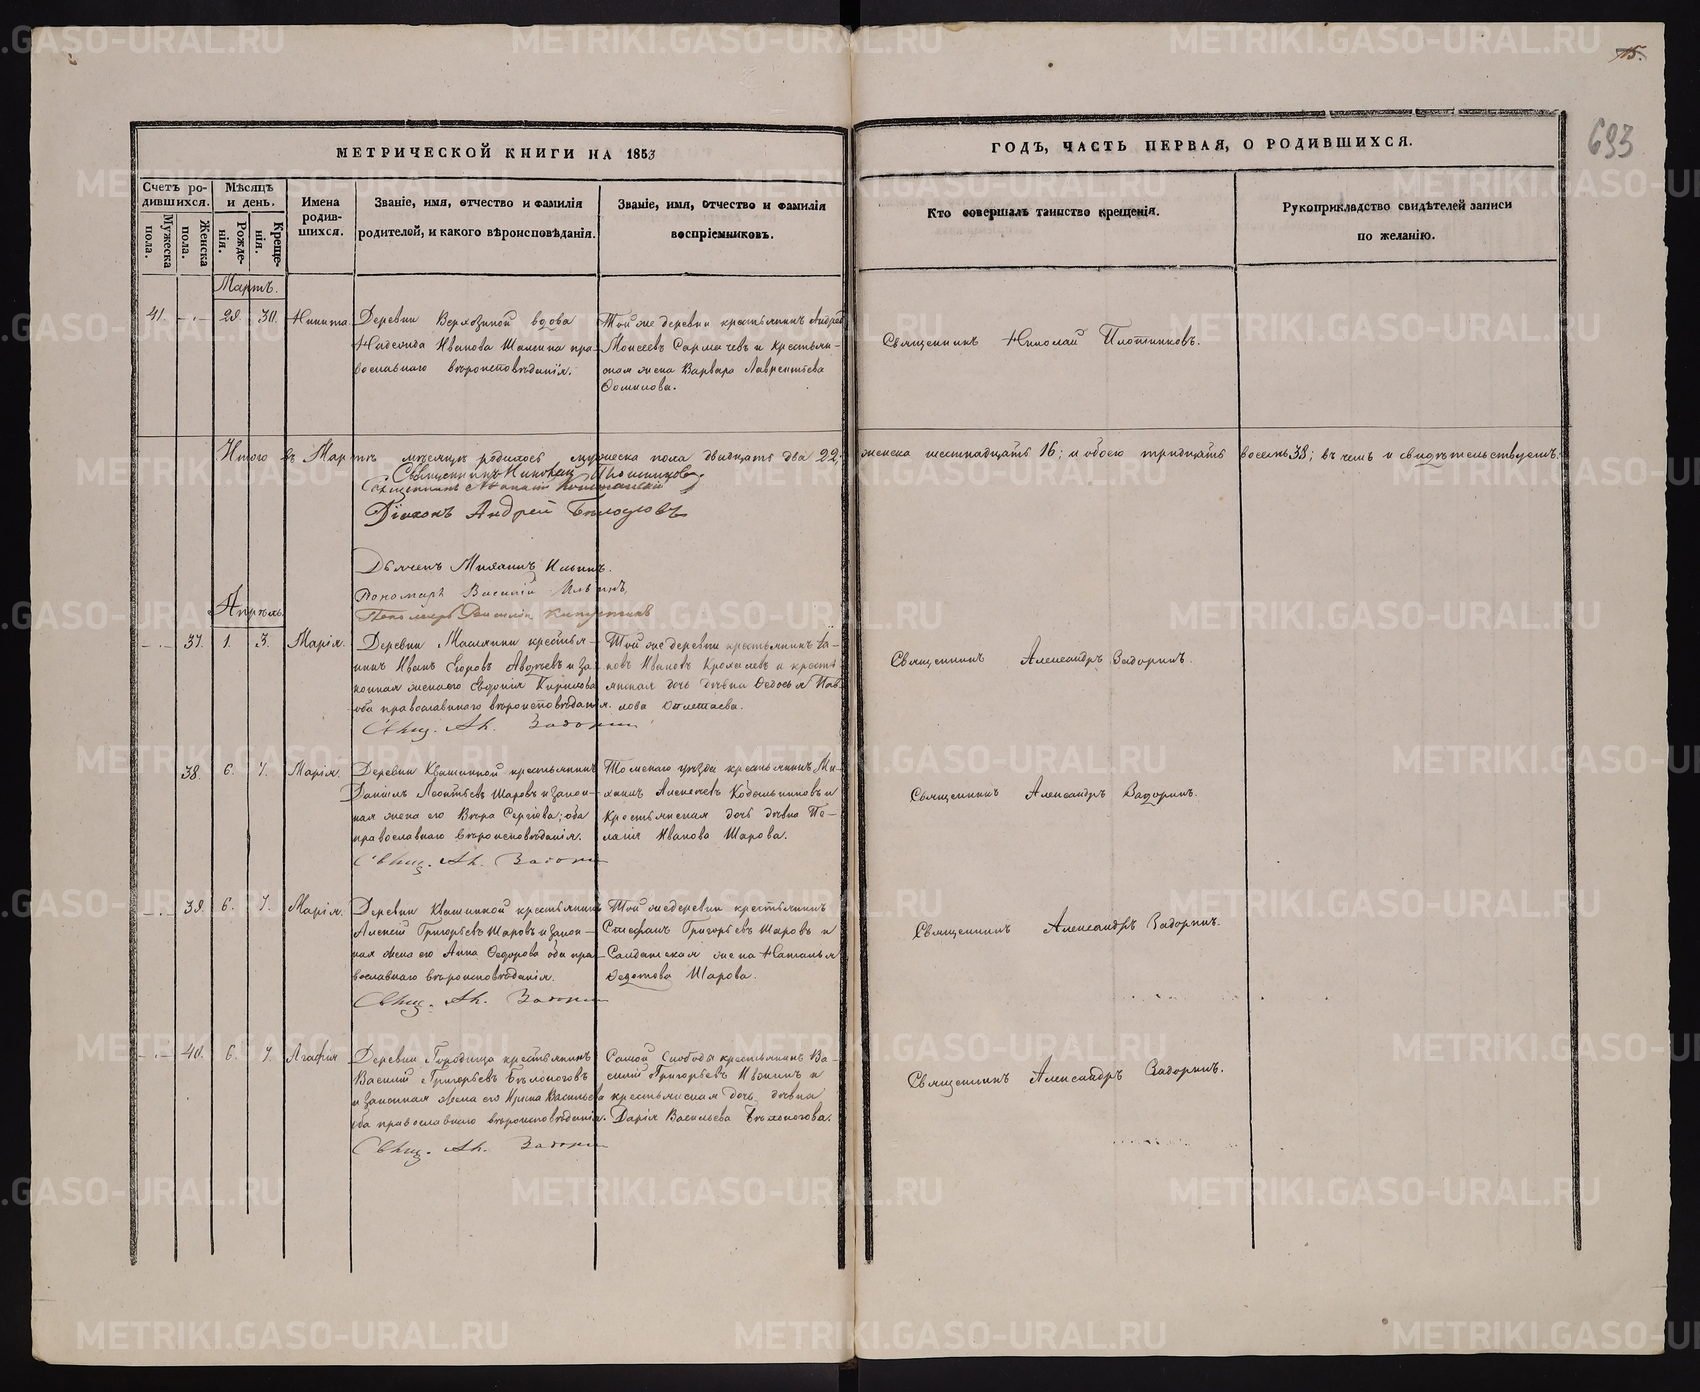 15.
693
МЕТРИЧЕСКОЙ КНИГИ НА 1853
ГОДЪ, ЧАСТЬ ПЕРВАЯ, О РОДИВШИХСЯ.
Счетъ ро-
дившихся.
Мужеска
пола.
Женска
пола.
Мѣсяцъ
и день.
Рожде-
нія.
Креще-
нія.
Имена
родив-
шихся.
Званіе, имя, отчество и фамилія
родителей, и какого вѣроисповѣданія.
Званіе, имя, отчество и фамилія
воспріемниковъ.
Кто совершалъ таинство крещенія.
Рукоприкладство свидѣтелей записи
по желанію.
Мартъ.
41. 30. Никита.
Деревни вдова
Надежда Иванова Шалина пра-
вославнаго вѣроисповѣданія.
Той же деревни крестьянинъ Андрей
Моисеевъ и Крестьян-
ская жена Варвара Лаврентьева
Священникъ Николай Плотниковъ.
Итого въ Мартѣ мѣсяцѣ родилось мужеска пола двадцать два 22,
женска шестнадцать 16; и обоего тридцать восемь 38; въ чемъ и свидѣтельствуемъ.
Священникъ Николай Плотниковъ
Священникъ
Діаконъ Андрей Бѣлоусовъ
Дьячекъ Михаилъ Ильинъ.
Пономарь Василій Ильинъ,
Пономарь
Апрѣль.
37. 1. 3. Марія.
Деревни крестья-
нинъ Иванъ Егоровъ и за-
конная жена его Евдокія Кирилова
оба православнаго вѣроисповѣданія.
Свящ. Ал. Задоринъ
Той же деревни крестьянинъ Іа-
ковъ Ивановъ и кресть-
янская дочь дѣвка Ѳедосья Пав-
лова
Священникъ Александръ Задоринъ.
38. 6. 7. Марія.
Деревни Квашниной крестьянинъ
Даніилъ Леонтьевъ Шаровъ и закон-
ная жена его Вѣра Сергіева; оба
православнаго вѣроисповѣданія.
Свящ. Ал. Задоринъ
уѣзда крестьянинъ Ми-
хаилъ Алексѣевъ Кобельниковъ и
Крестьянская дочь дѣвка Пе-
лагія Иванова Шарова.
Священникъ Александръ Задоринъ.
39. 6. 7. Марія.
Деревни Квашниной крестьянинъ
Алексѣй Григорьевъ Шаровъ и закон-
ная жена его Анна Ѳедорова оба пра-
вославнаго вѣроисповѣданія.
Свящ. Ал. Задоринъ
Той же деревни крестьянинъ
Стефанъ Григорьевъ Шаровъ и
Солдатская жена Наталья
Шарова.
Священникъ Александръ Задоринъ.
40. 6. 7. Агафія
Деревни Городища крестьянинъ
Василій Григорьевъ Бѣлоноговъ
и законная жена его Ирина Васильева
оба православнаго вѣроисповѣданія.
Свящ. Ал. Задоринъ
Самой Слободы крестьянинъ Ва-
силій Григорьевъ и
крестьянская дочь дѣвка
Дарія Васильева Бѣлоногова.
Священникъ Александръ Задоринъ.
METRIKI.GASO-URAL.RU